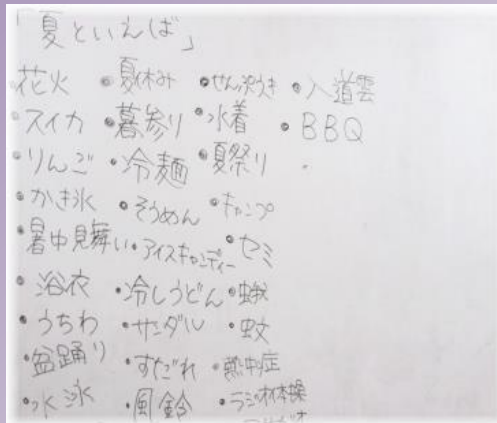 「夏といえば」
花火 ・夏休み ・せんぷうき ・入道雲
・スイカ ・暮参り ・水着 ・BBQ
・りんご ・冷麺 ・夏祭り ・
・かき氷 ・そうめん ・キャンプ
・暑中見舞い ・アイスキャンディー ・セミ
・浴衣 ・冷しうどん ・蛾
・うちわ ・サンダル ・蚊
・盆踊り ・すだれ ・熱中症
・水泳 ・風鈴 ・ラジオ体操